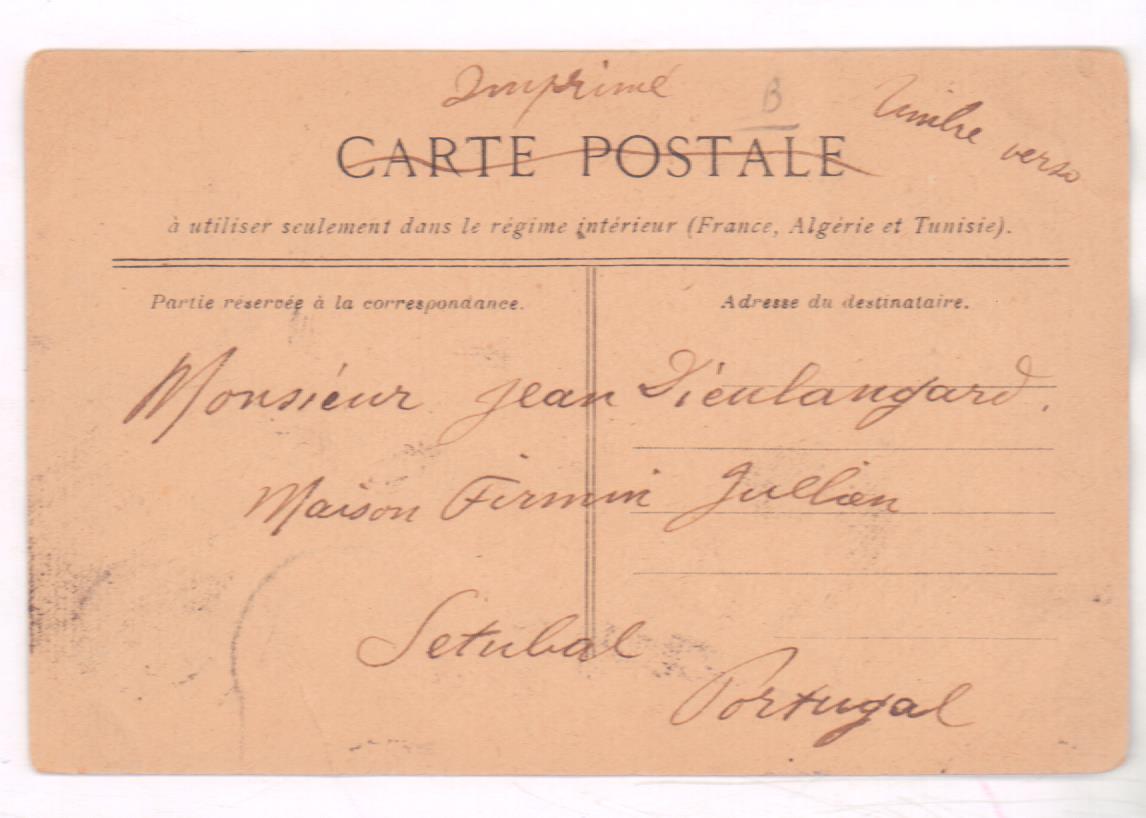 Imprimé
B
Timbre verso
CARTE POSTALE
à utiliser seulement dans le régime intérieur (France, Algérie et Tunisie).
Partie réservée à la correspondance.
Adresse du destinataire.
Monsieur Jean Dieulangard.
Maison Firmin Jullien
Setubal
Portugal